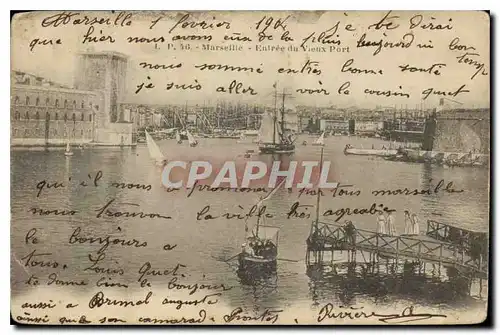 Marseille 1 Fevrier 190 Je te Dirai
que hier nous avons eux de la plui aujourd'in bon temp
L. P. 46. - Marseille - Entrée du Vieux Port
nous somme entrès bonne santé
je suis aller voir la cousin quet
qui l nous a promoner par tous marseille
nous trouvon la ville très agreable
le bonjours a
tous. Louis Quet
te donne bien le bonjour
aussi a Brimal auguste
ainsi que son camarad. Prontes Rivière
CPARAMA